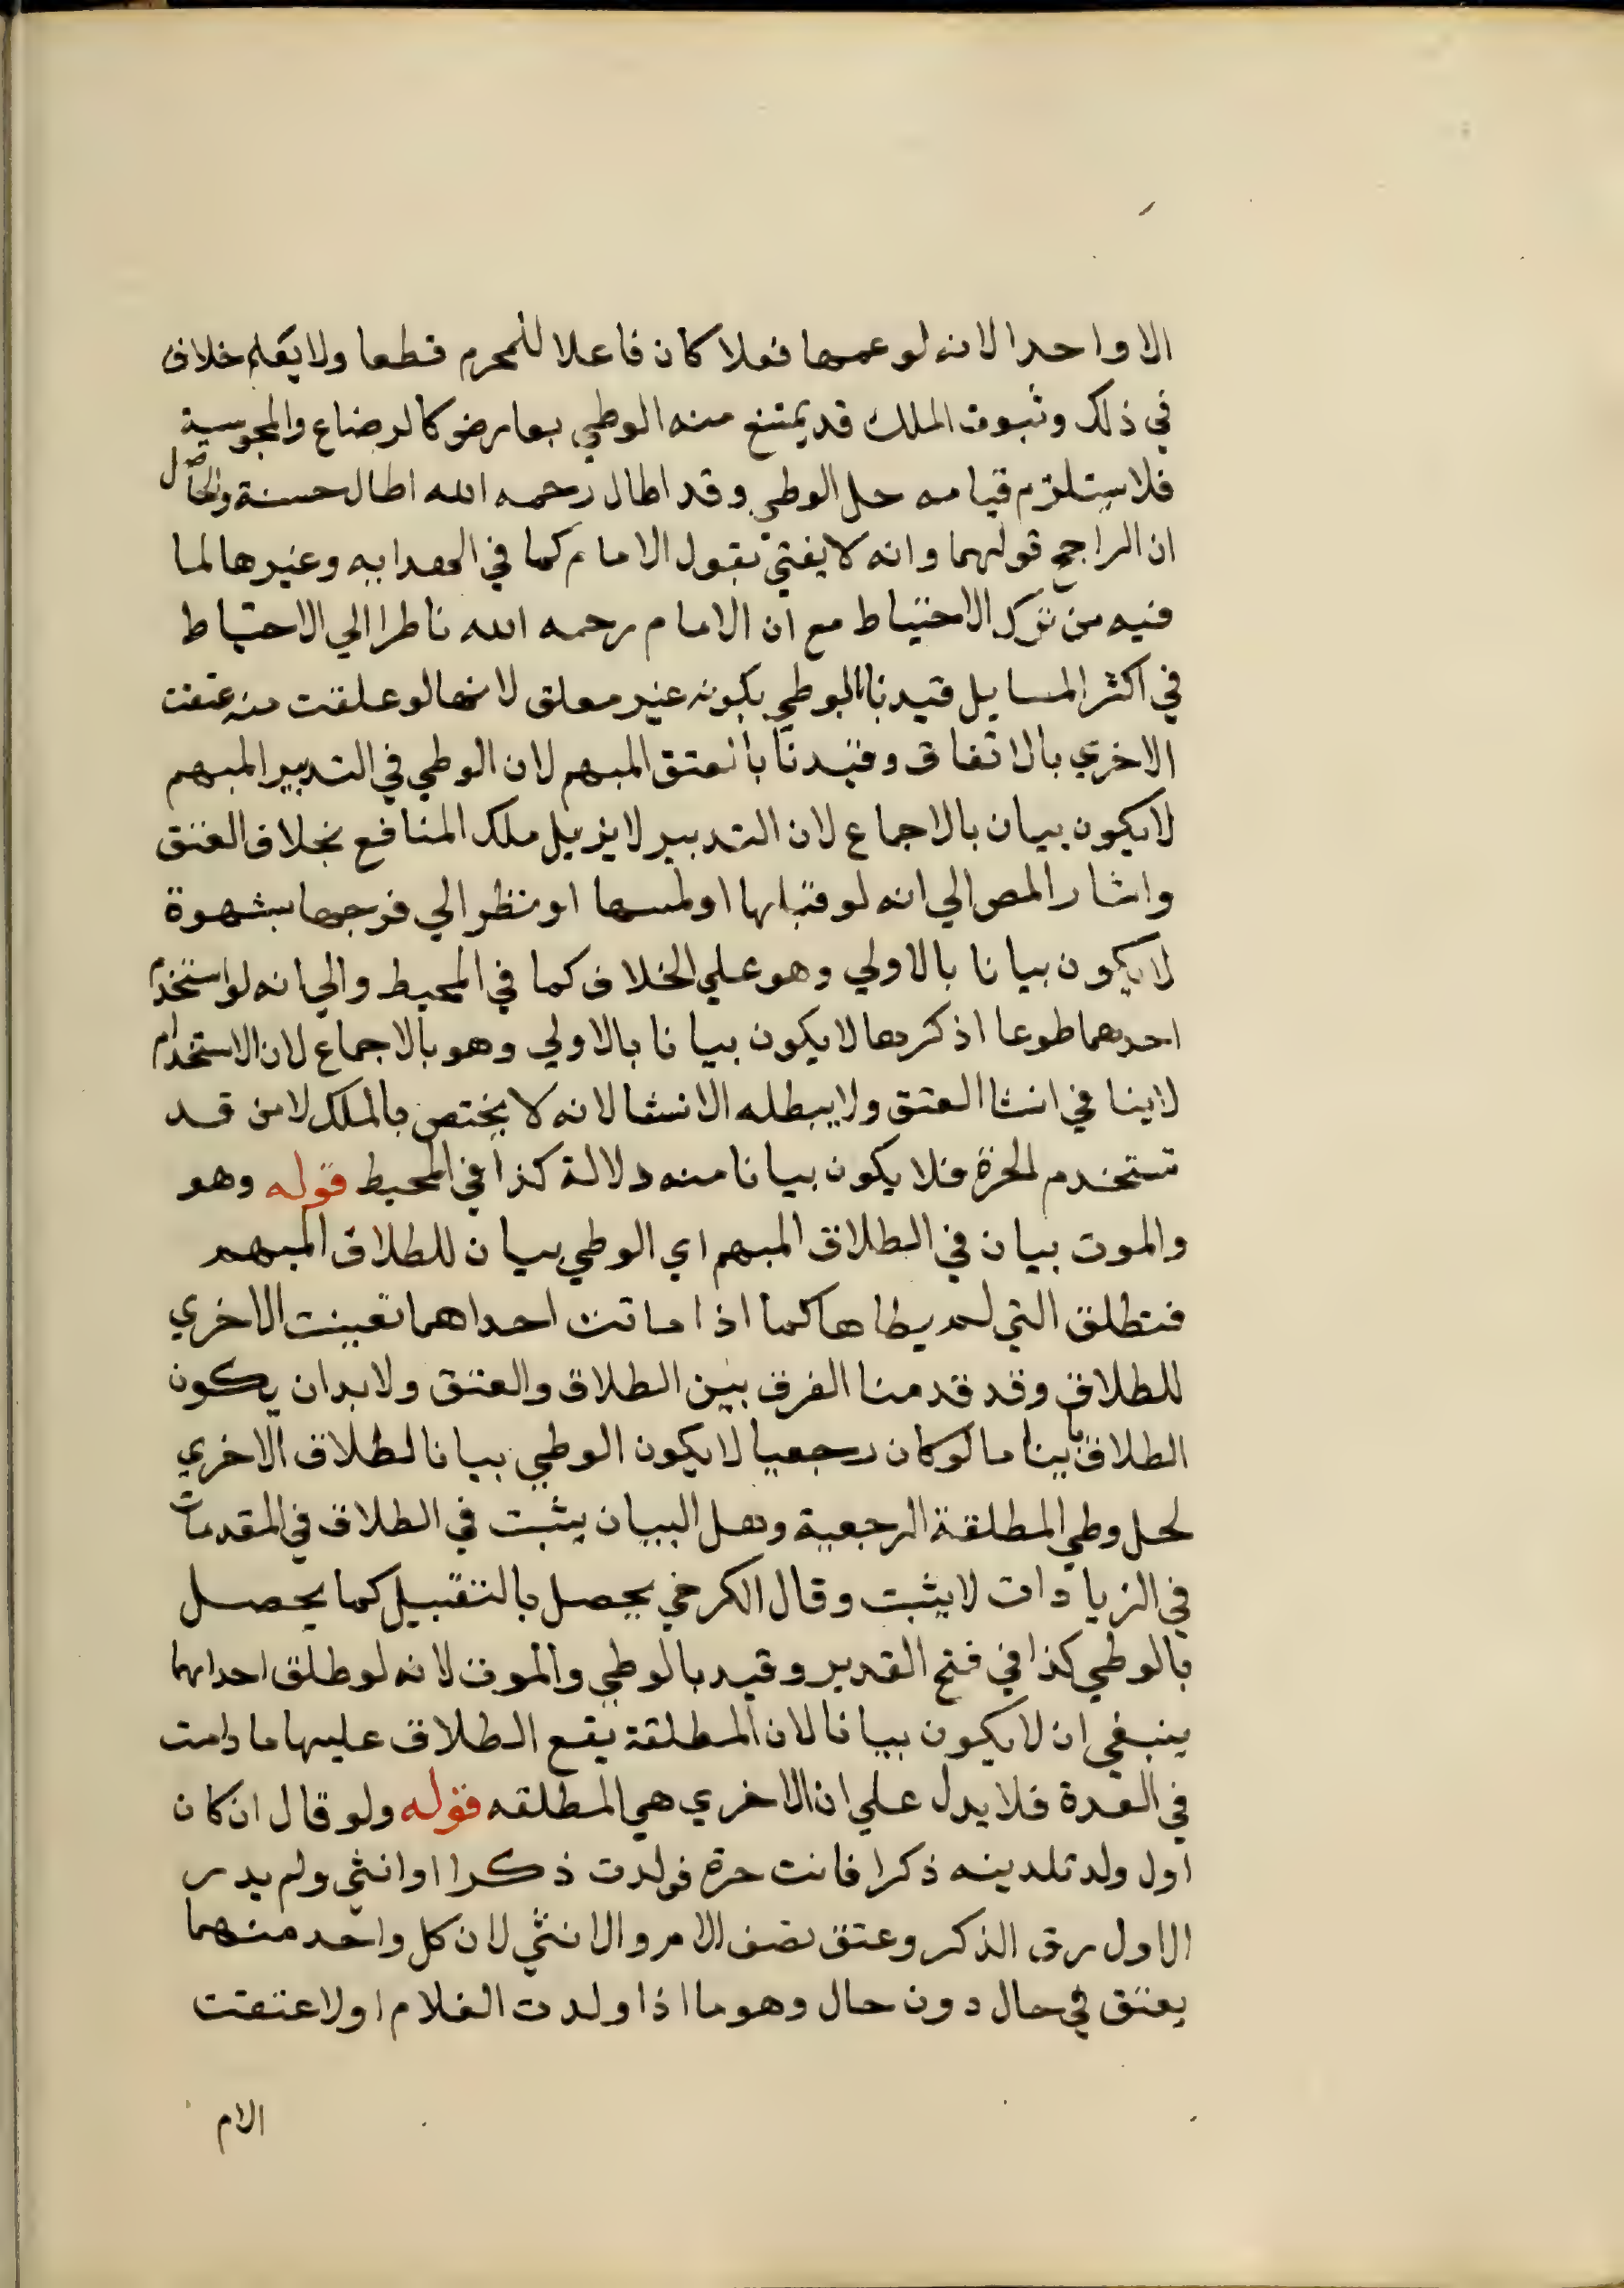 الا واحدا لانه لو عمها فعلا كان فاعلا للمحرم قطعا ولا يعلم خلاف
في ذلك وثبوت الملك قد يمتنع منه الوطي بعارض كالرضاع والمجوسية
فلا يستلزم قيامه حل الوطي وقد اطال رحمه الله اطال حسنة والحاصل
ان الراجح قولهما وانه لا يفتي بقول الامام كما في الهدايه وغيرها لما
فيه من ترك الاحتياط مع ان الامام رحمه الله ناظرا الي الاحتياط
في اكثر المسايل قيدنا بالوطي بكونه غير معلق لانها لو علقت منه عتقت
الاخري بالاتفاق وقيدنا بالعتق المبهم لان الوطي في التدبير المبهم
لا يكون بيان بالاجماع لان التدبير لا يزيل ملك المنافع بخلاف العتق
واشار المص الي انه لو قبلها او لمسها او نظر الي فرجها بشهوة
لا يكون بيانا بالاولي وهو علي الخلاف كما في المحيط والي انه لو استخدم
احدهما طوعا اذ كرها لا يكون بيانا بالاولي وهو بالاجماع لان الاستخدام
لا ينافي انشا العتق ولا يبطله الانشا لانه لا يختص بالملك لا من قد
تستخدم الحرة فلا يكون بيانا منه دلالة كذا في المحيط قوله وهو
والموت بيان في الطلاق المبهم اي الوطي بيان للطلاق المبهم
فتطلق التي لم يطاها كما اذا ماتت احداهما تعينت الاخري
للطلاق وقد قدمنا الفرق بين الطلاق والعتق ولا بد ان يكون
الطلاق باينا ما لو كان رجعيا لا يكون الوطي بيانا لطلاق الاخري
لحل وطي المطلقة الرجعية وهل البيان يثبت في الطلاق في المقدمات
في الزيادات لا يثبت وقال الكرخي يحصل بالتقبيل كما يحصل
بالوطي كذا في فتح القدير وقيد بالوطي والموت لانه لو طلق احداهما
ينبغي ان لا يكون بيانا لان المطلقة يقع الطلاق عليها ما دامت
في العدة فلا يدل علي ان الاخري هي المطلقه قوله ولو قال ان كان
اول ولد تلدينه ذكرا فانت حرة فولدت ذكرا او انثي ولم يدر
الاول رق الذكر وعتق نصف الامر والانثي لان كل واحد منهما
يعتق في حال دون حال وهو ما اذا ولدت الغلام اولا عتقت
الام